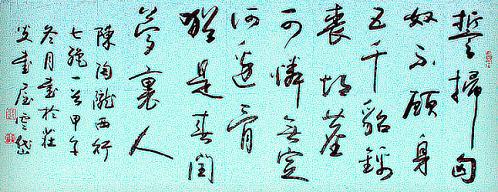 誓掃匈
奴不顧身
五千貂錦
喪胡塵
可憐無定
河邊骨
猶是春閨
夢裏人
陳陶隴西行
七絕一首甲午
冬月書於莊
書屋雲岱